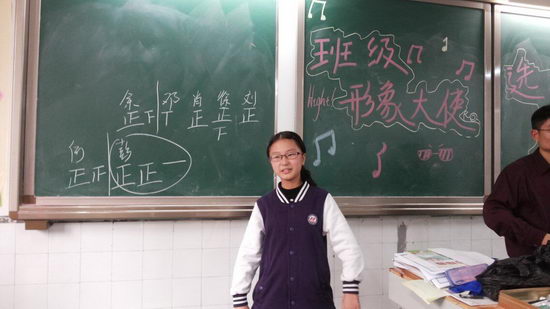 余 邓 肖 徐 刘
正下 丅 正 正 正
下
何 彭
正正 正正一
班级
形象大使
选